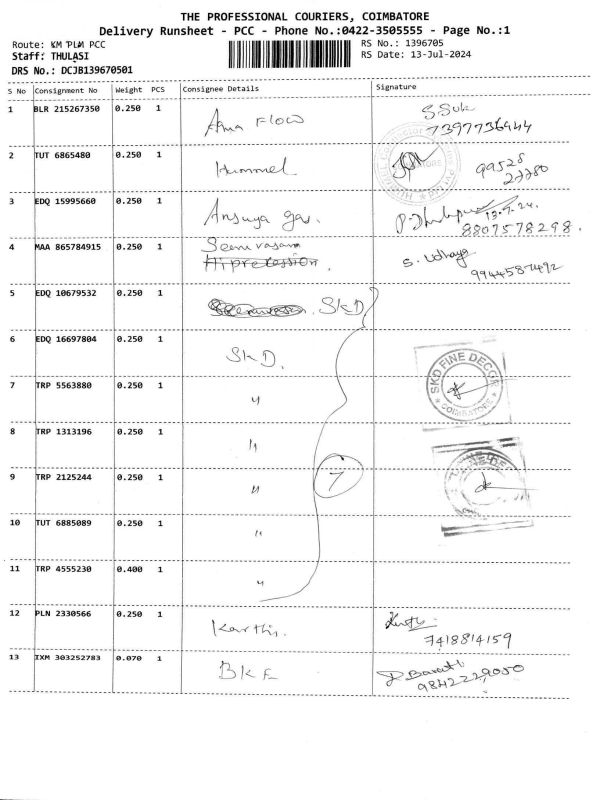 THE PROFESSIONAL COURIERS, COIMBATORE
Delivery Runsheet - PCC - Phone No.:0422-3505555 - Page No.:1
Route: KM PLM PCC
RS No.: 1396705
Staff: THULASI
RS Date: 13-Jul-2024
DRS No.: DCJB139670501
S No Consignment No Weight PCS Consignee Details Signature
1 BLR 215267350 0.250 1 Flow
7397736444
2 TUT 6865480 0.250 1 Hummel 99528
27780
3 EDQ 15995660 0.250 1 Ansuya gas. 13.7.24.
8807578298.
4 MAA 865784915 0.250 1 Seenivasan S. Udhaya
9944587492
5 EDQ 10679532 0.250 1 SKD
6 EDQ 16697804 0.250 1 SKD.
SKD FINE DECOR
COIMBATORE
7 TRP 5563880 0.250 1 "
8 TRP 1313196 0.250 1 "
9 TRP 2125244 0.250 1 " 7
10 TUT 6885089 0.250 1 "
11 TRP 4555230 0.400 1 "
12 PLN 2330566 0.250 1 Karthi.
7418814159
13 IXM 303252783 0.070 1 BKE
9842229050